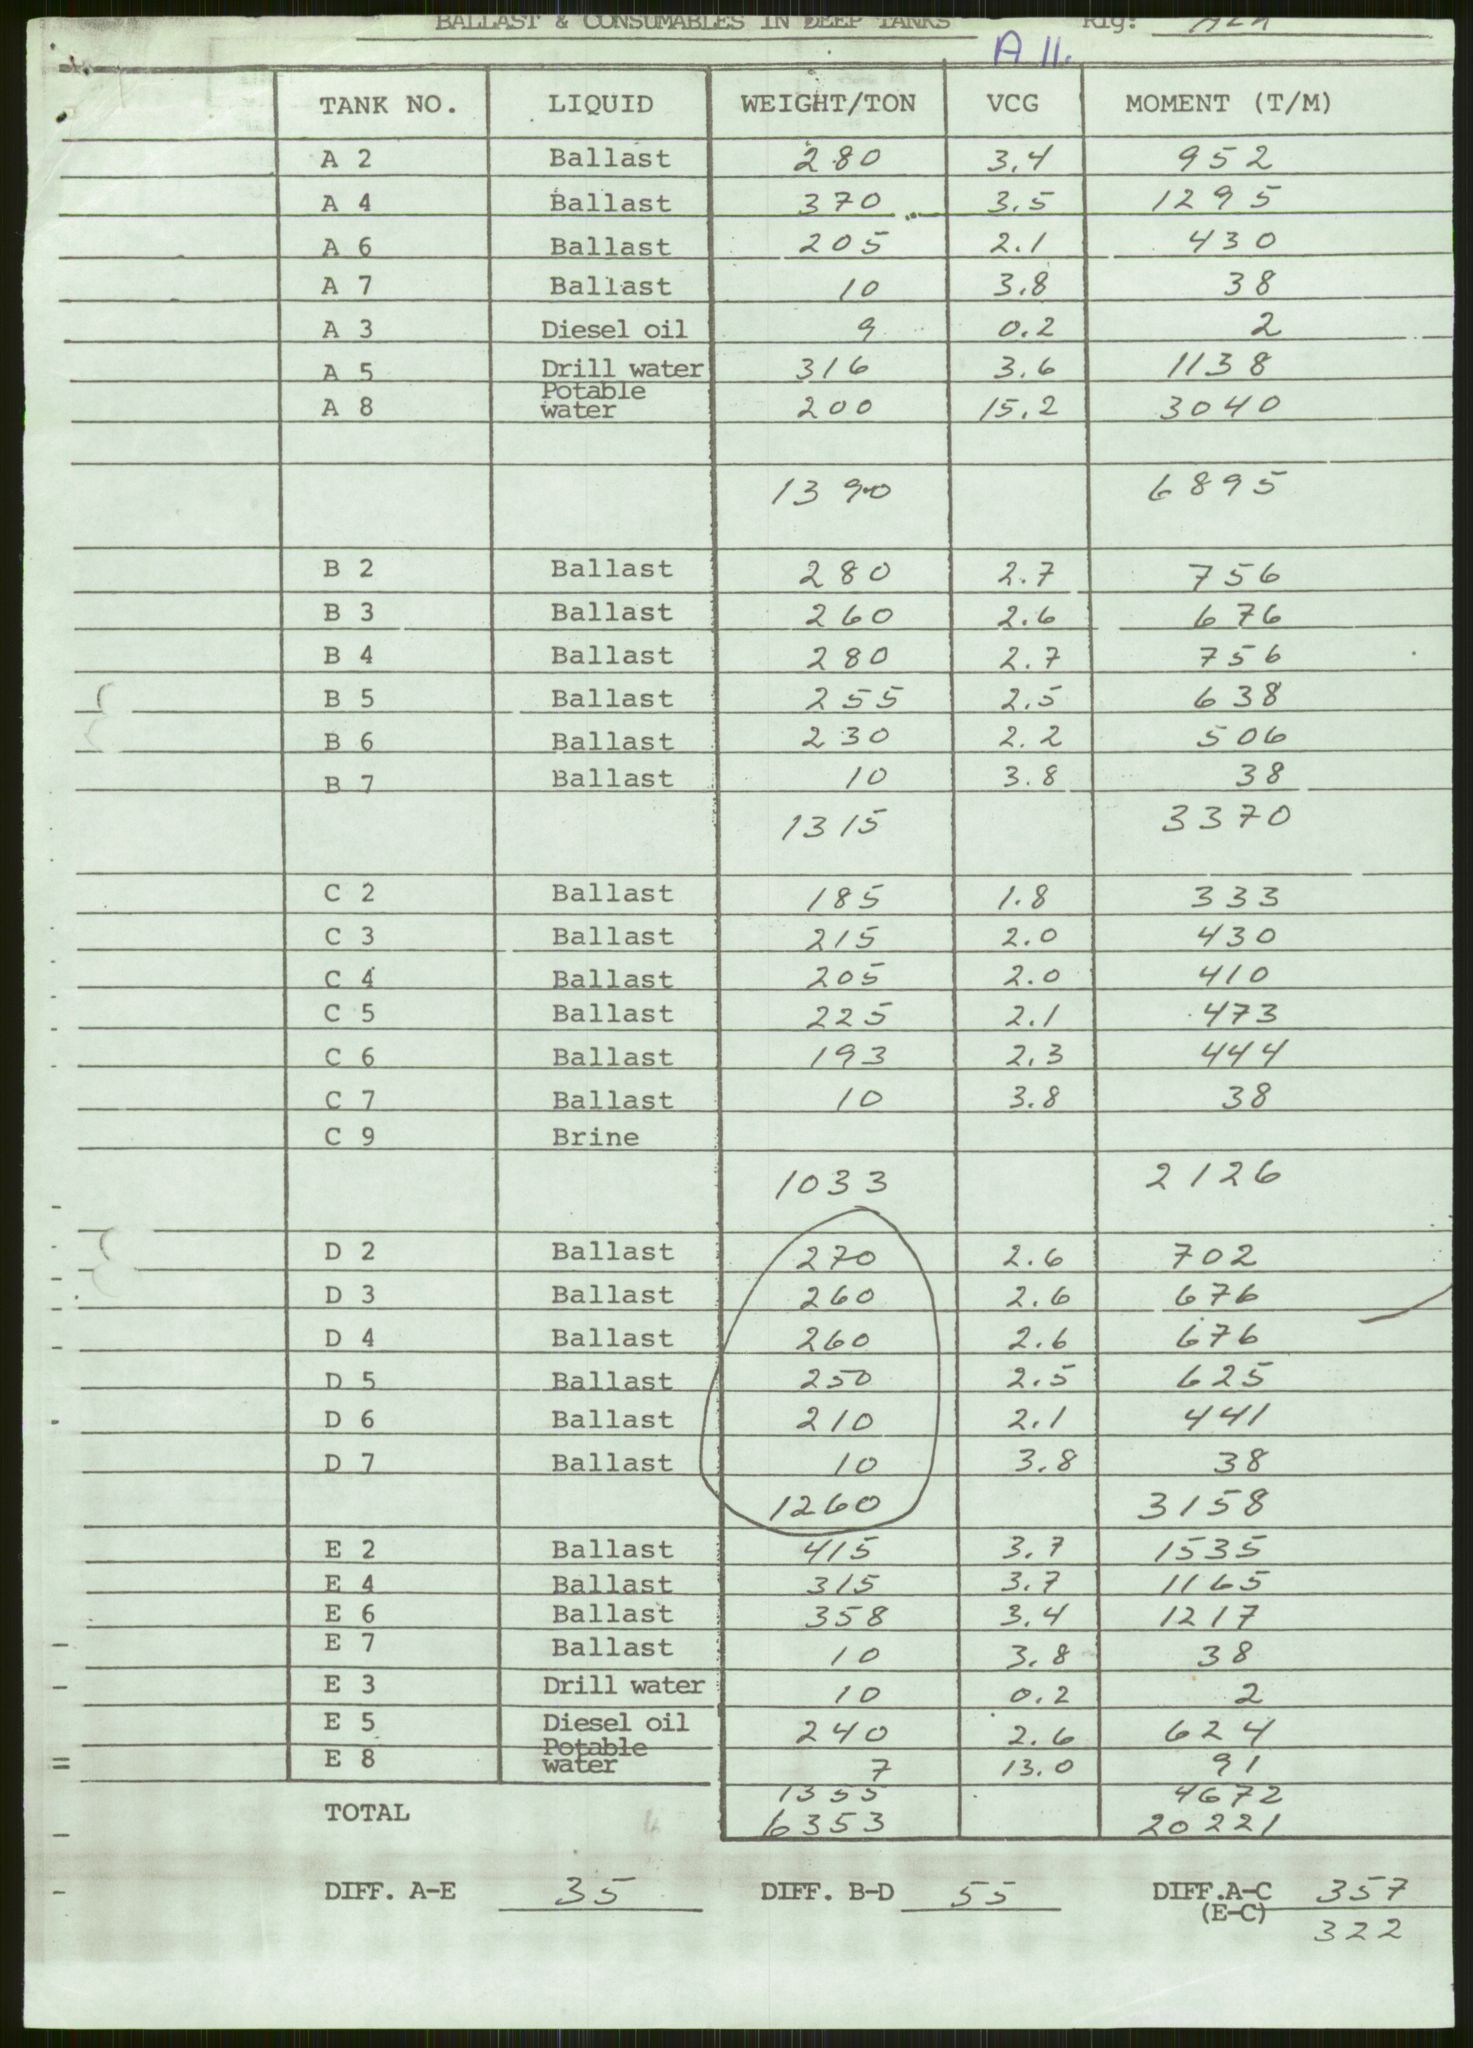 BALLAST & CONSUMABLES IN DEEP TANKS Rig:
A 11.
TANK NO. LIQUID WEIGHT/TON VCG MOMENT (T/M)
A 2 Ballast 280 3.4 952
A 4 Ballast 370 3.5 1295
A 6 Ballast 205 2.1 430
A 7 Ballast 10 3.8 38
A 3 Diesel oil 9 0.2 2
A 5 Drill water 316 3.6 1138
Potable
A 8 water 200 15.2 3040
1390 6895
B 2 Ballast 280 2.7 756
B 3 Ballast 260 2.6 676
B 4 Ballast 280 2.7 756
B 5 Ballast 255 2.5 638
B 6 Ballast 230 2.2 506
B 7 Ballast 10 3.8 38
1315 3370
C 2 Ballast 185 1.8 333
C 3 Ballast 215 2.0 430
C 4 Ballast 205 2.0 410
C 5 Ballast 225 2.1 473
C 6 Ballast 193 2.3 444
C 7 Ballast 10 3.8 38
C 9 Brine
1033 2126
D 2 Ballast 270 2.6 702
D 3 Ballast 260 2.6 676
D 4 Ballast 260 2.6 676
D 5 Ballast 250 2.5 625
D 6 Ballast 210 2.1 441
D 7 Ballast 10 3.8 38
1260 3158
E 2 Ballast 415 3.7 1535
E 4 Ballast 315 3.7 1165
E 6 Ballast 358 3.4 1217
E 7 Ballast 10 3.8 38
E 3 Drill water 10 0.2 2
E 5 Diesel oil 240 2.6 624
Potable
E 8 water 7 13.0 91
1355 4672
TOTAL 6353 20221
DIFF. A-E 35 DIFF. B-D 55 DIFF.A-C 357
(E-C) 322